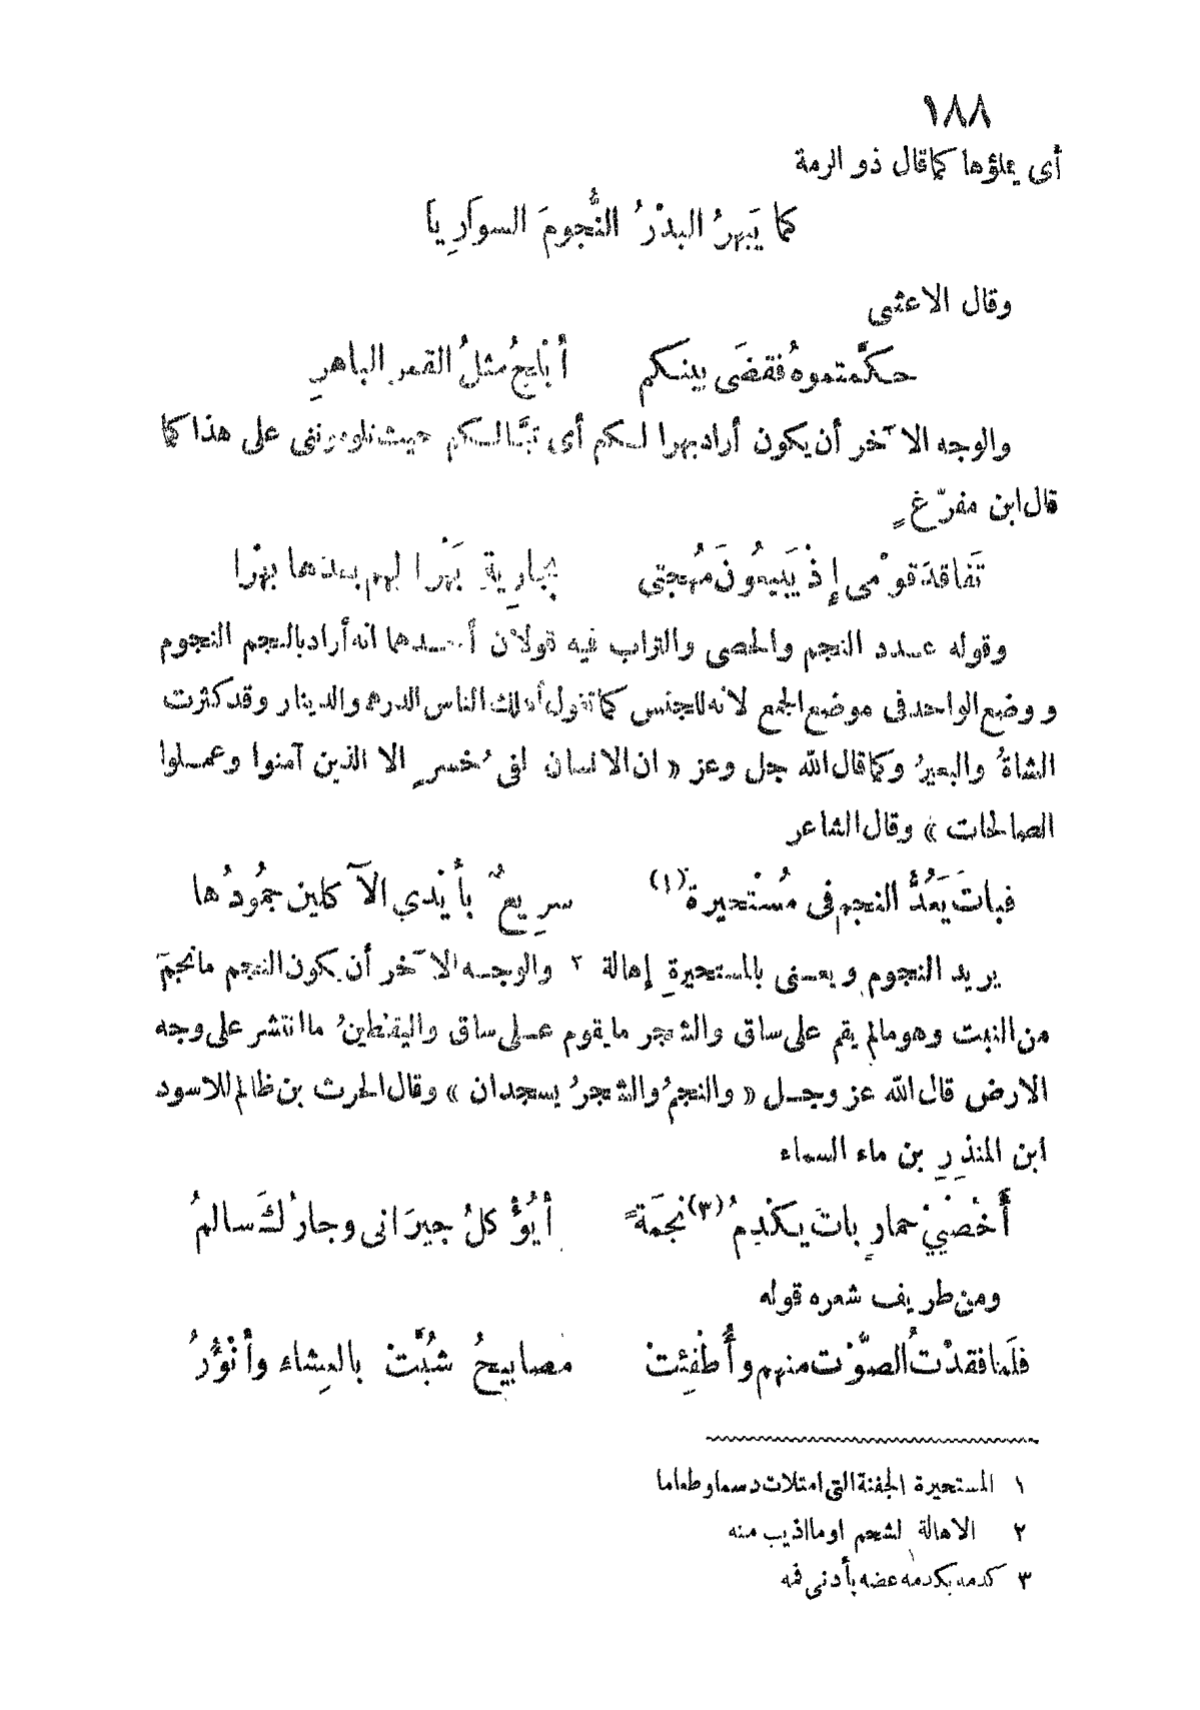 ١٨٨
أى يملؤها كما قال ذو الرمة
كما يَبهرُ البدْرُ النُّجومَ السوارِيا
وقال الاعشى
حكَّمتموهُ فقضَى بينكم أبْلجُ مثلُ القمر الباهرِ
والوجه الآخر أن يكون أراد بهرا لكم أى تبَّا لكم حيث تلوموننى على هذا كما
قال ابن مفرّغٍ
تَفاقدَ قوْمى إِذْ يَبيعُونَ مُهجتى بجارِيةٍ بَهْرا لهم بعدها بهْرا
وقوله عدد النجم والحصى والتراب فيه قولان أحدها انه أراد بالنجم النجوم
و وضع الواحد فى موضع الجمع لانه للجنس كما تقول أهلك الناس الدرهم والدينار وقد كثرت
الشاةُ والبعيرُ وكما قال الله جل وعز « ان الانسان لفى خُسرٍ الا الذين آمنوا وعملوا
الصالحات » وقال الشاعر
فباتَ يَعُدُّ النجم فى مُسْتحيرة (١) سرِيعٌ بأَيْدي الآكلين جمُودُها
يريد النجوم ويعنى بالمستحيرةِ إهالة ٢ والوجه الآخر أن يكون النجم ما نجمَ
من النبت وهو مالم يقم على ساق والشجر ما يقوم على ساق واليقطينُ ما انتشر على وجه
الارض قال الله عز وجل « والنجمُ والشجرُ يسجدان » وقال الحرث بن ظالم للاسود
ابن المنذِرِ بن ماء السماء
أَخُصْيَيْ حمارٍ باتَ يكْدِمُ (٣) نجمَةً أيُؤْكلُ جيرَانى وجارُكَ سالمُ
ومن طريف شعره قوله
فلَما فقدْتُ الصَّوْت منهم وأُطْفِئت مصابيحُ شُبَّتْ بالعِشاء وأنْؤُرُ
١ المستحيرة الجفنة التى امتلات دسما وطعاما
٢ الاهالة لشحم او ما اذيب منه
٣ كدمه يكدمه عضه بأدنى فمه